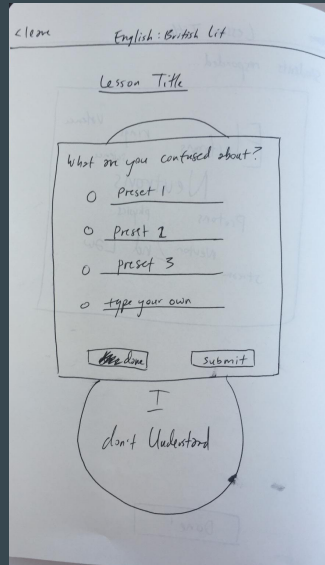 < leave English: British Lit
Lesson Title
What are you confused about?
preset 1
preset 2
preset 3
type your own
done submit
I
don't Understand